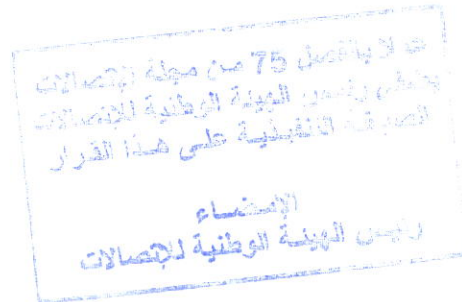 عملا بالفصل 75 من مجلة الاتصالات
يمضي رئيس الهيئة الوطنية للاتصالات
الصيغة التنفيذية على هذا القرار
الإمضاء
رئيس الهيئة الوطنية للاتصالات